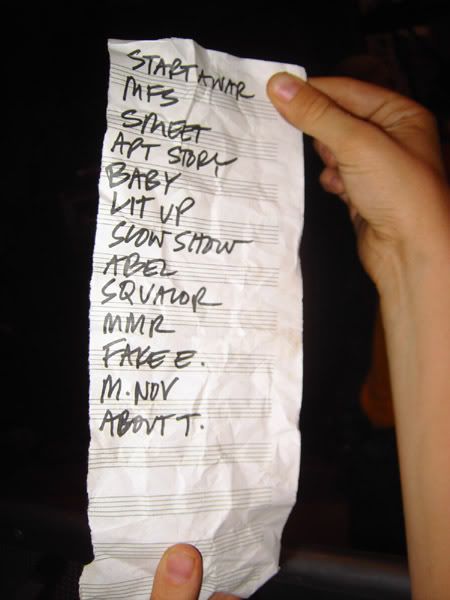 START A WAR
MFS
SMEET
APT STORY
BABY
LIT UP
SLOW SHOW
ABEL
SQUALOR
MMR
FAKE E.
M. NOV
ABOUT T.